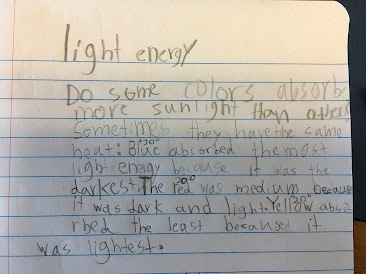 light energy
Do some colors absorb
more sunlight than others
Sometimes they have the same
heat: Blue absorbed the most
light energy because it was the
darkest. The red was medium because
it was dark and light. Yellow abso
rbed the least because it
was lightest.